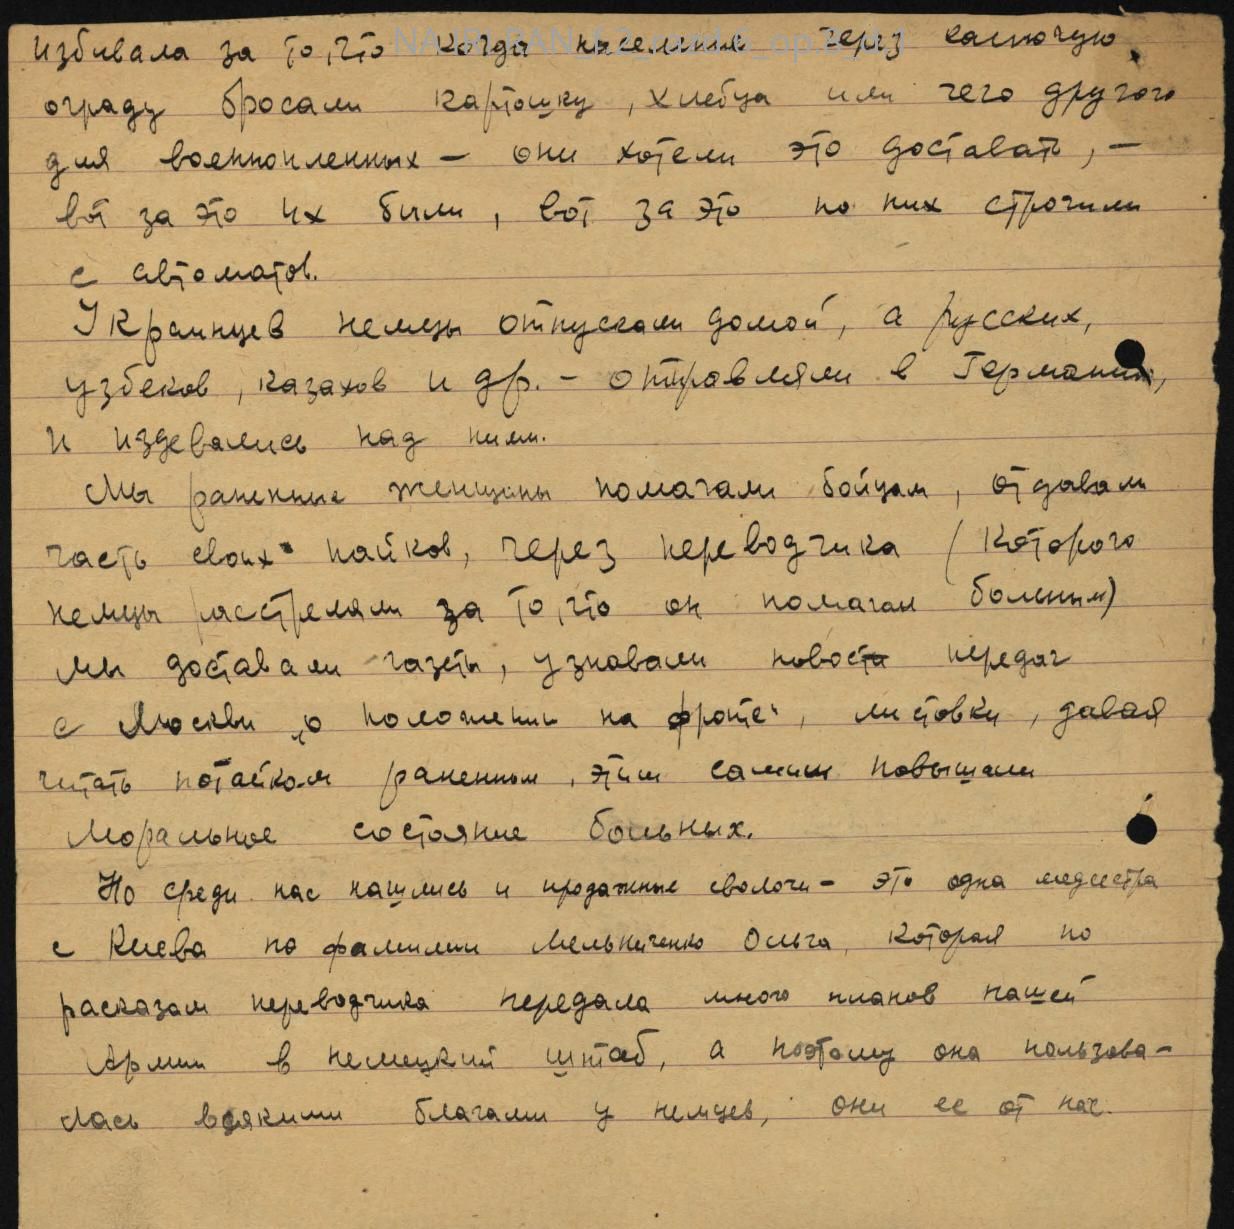 избивала за то, что когда население через колючую
ограду бросали картошку, хлебца или чего другого
для военнопленных – они хотели это доставать, –
вот за это их били, вот за это по них строчили
с автоматов.
Украинцев немцы отпускали домой, а русских,
узбеков, казахов и др. – отправляли в Германию,
и издевались над ними.
Мы раненные женщины помагали бойцам, отдавали
часть своих пайков, через переводчика (которого
немцы расстреляли за то, что он помагал больным)
мы доставали газеты, узнавали новости передач
с Москви „о положении на фронте“, листовки, давая
читать потайком раненным, этим самим повышали
моральное состояние больных.
Но среди нас нашлись и продажные сволочи – это одна медсестра
с Киева по фамилии Мельниченко Ольга, которая по
расказам переводчика передала много планов нашей
Армии в немецкий штаб, а поэтому она пользова-
лась всякими благами у немцев, они ее от нас